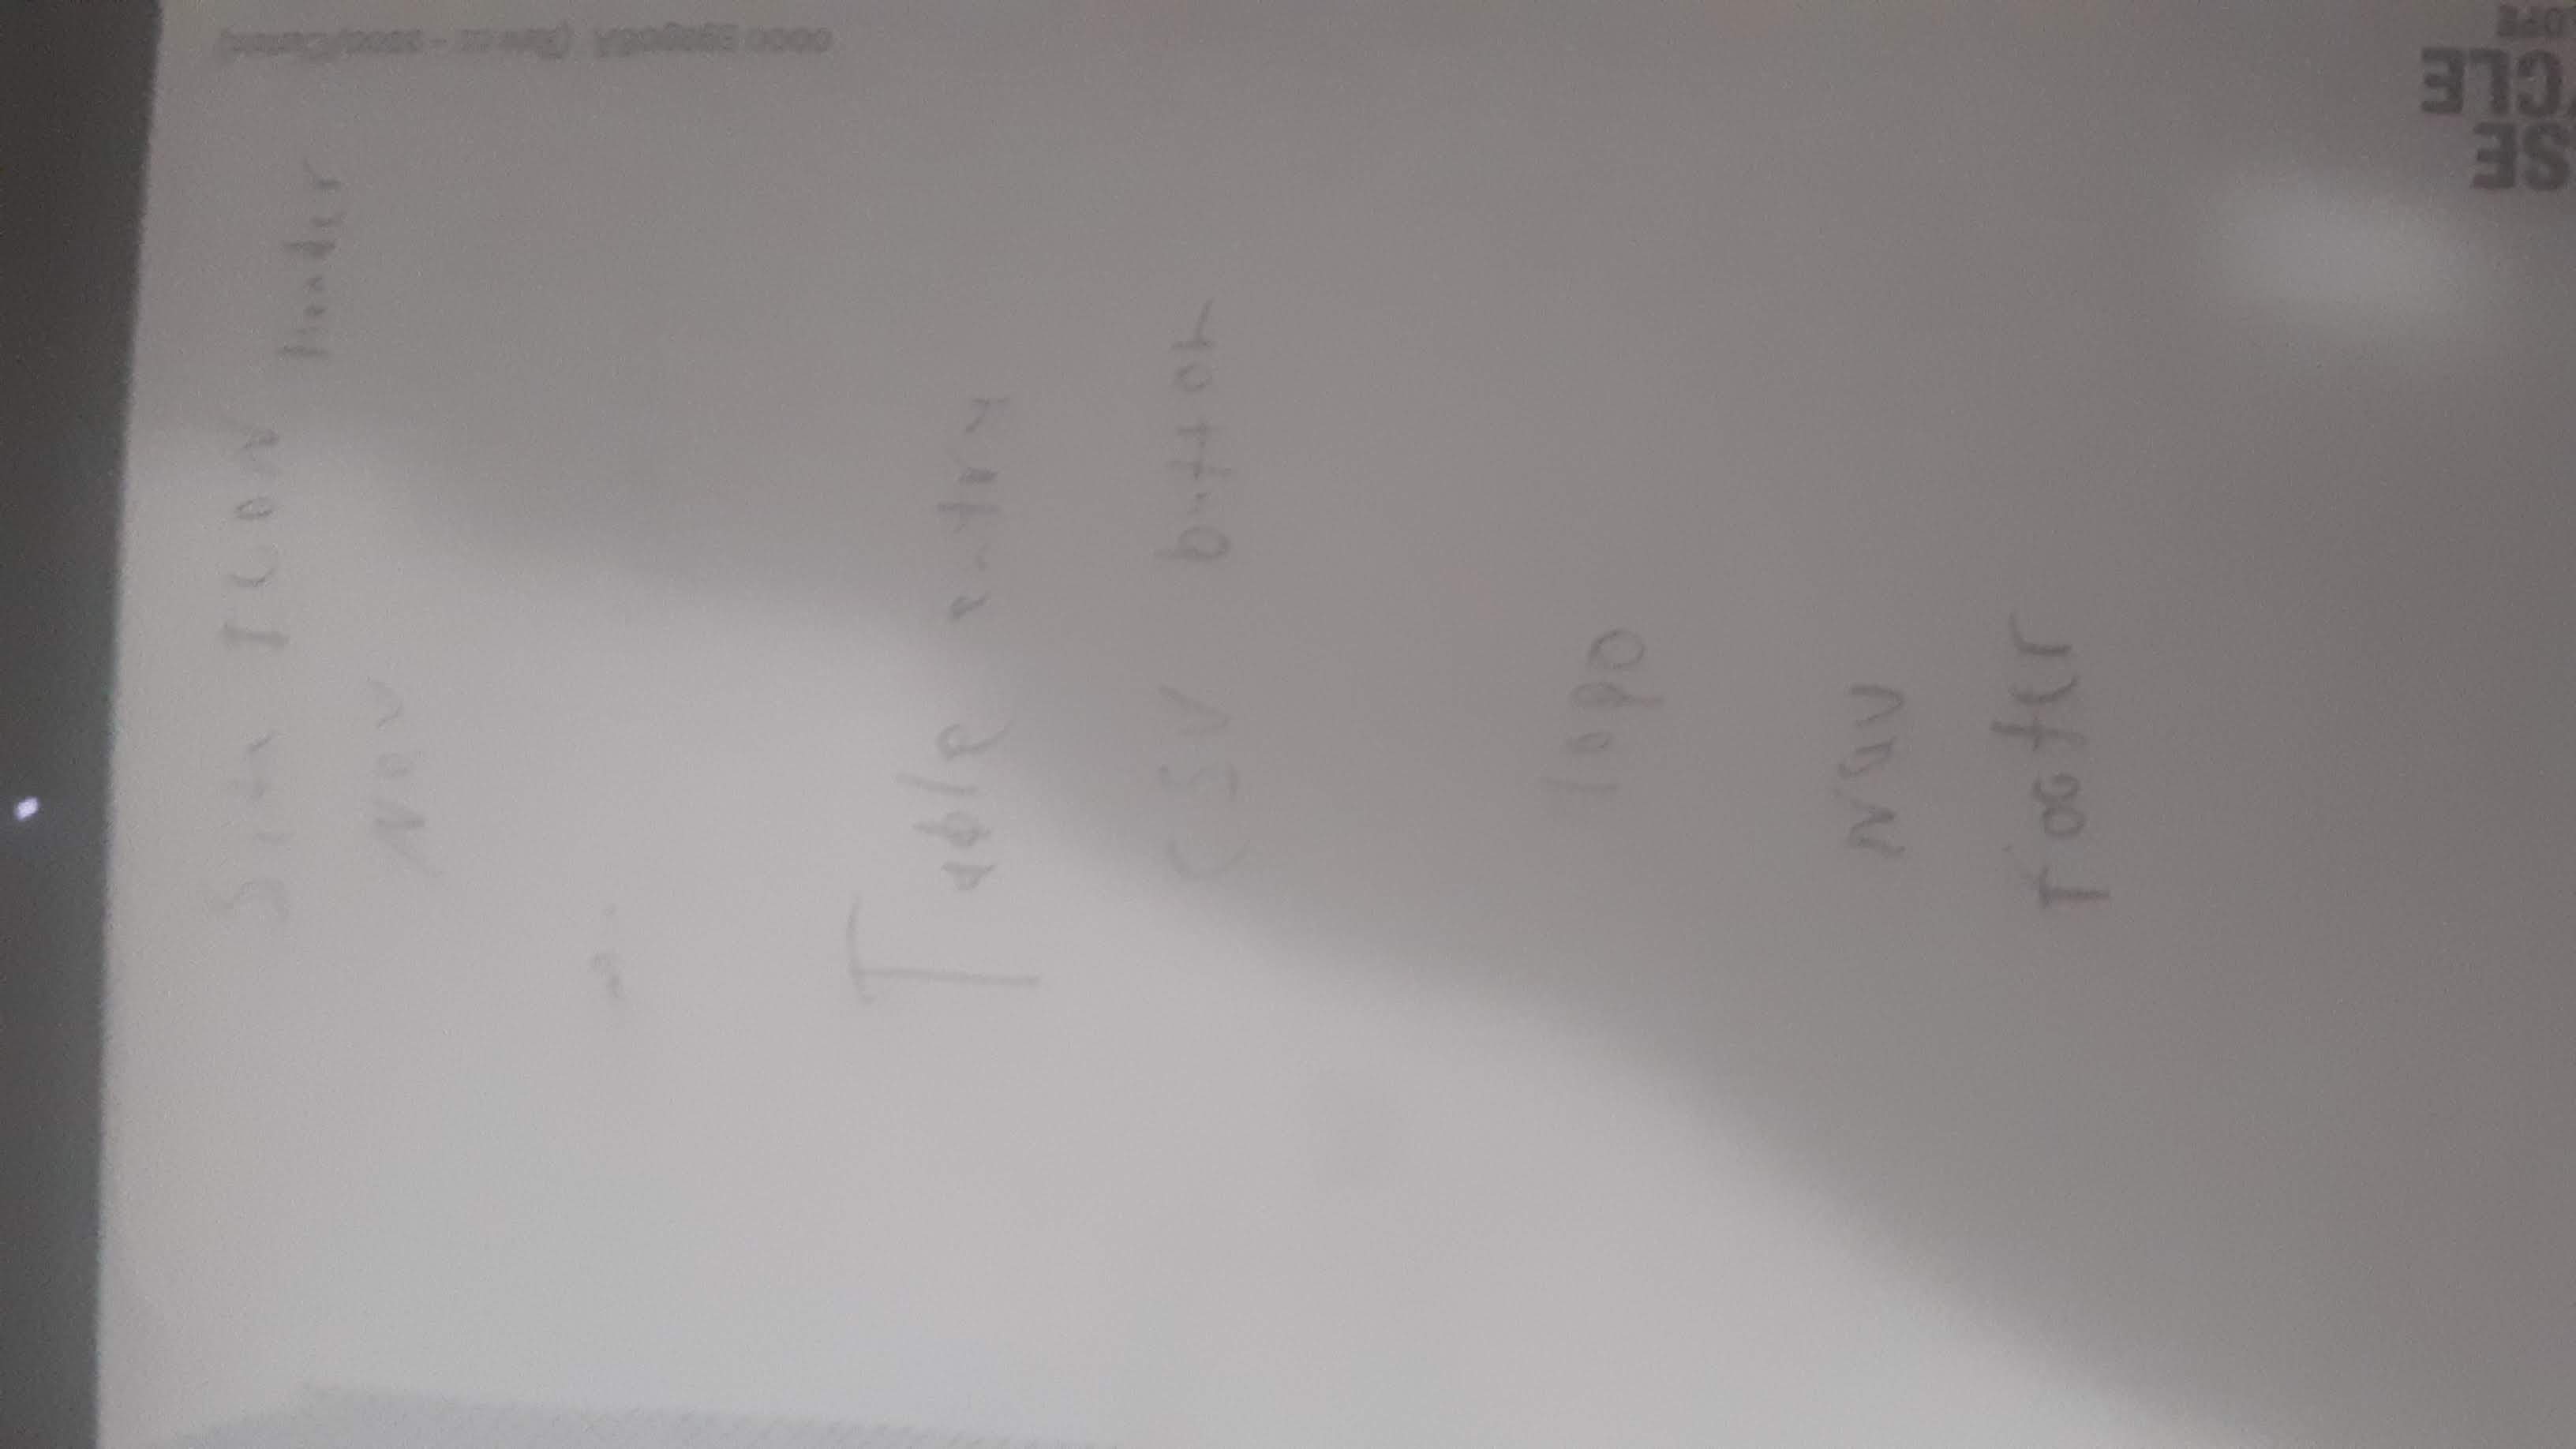 Site ICON
Header
Nav
Table entry
CSV button
logo
Nav
Footer
SE
CLE